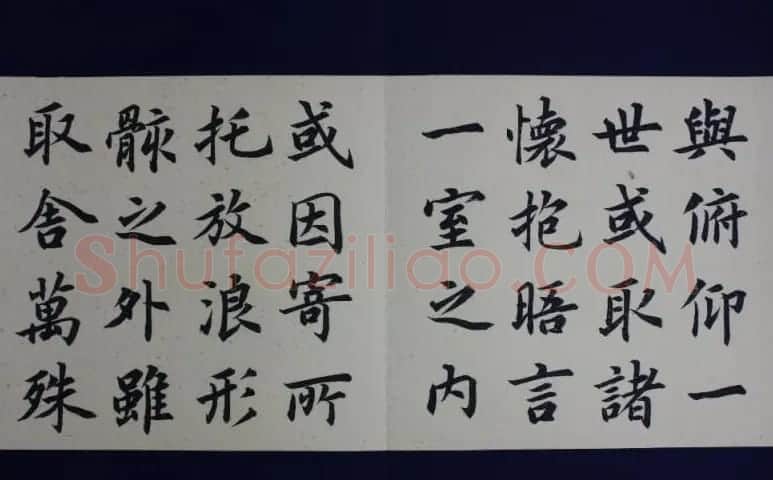 與俯仰一
世或取諸
懷抱晤言
一室之内
或因寄所
托放浪形
骸之外雖
取舍萬殊
Shufaziliao.COM